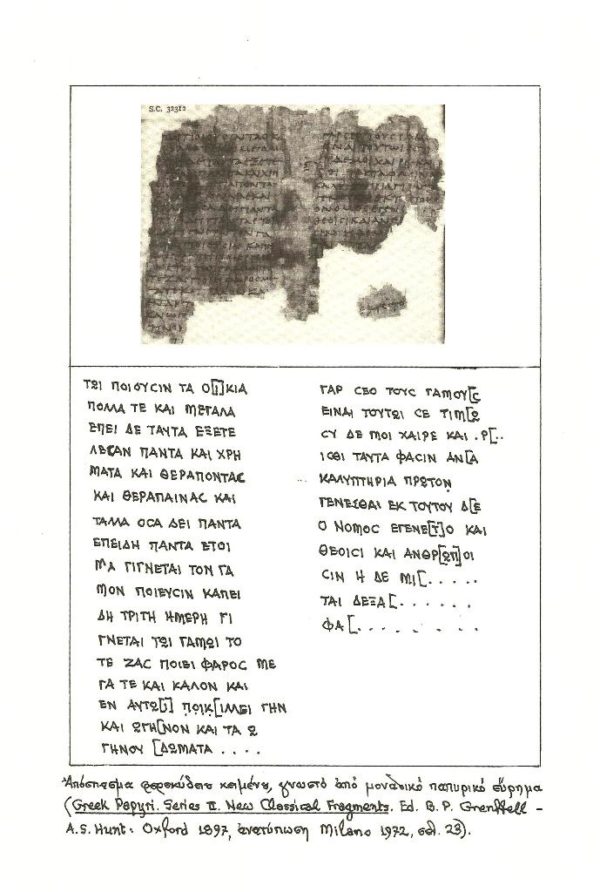 S.C. 32312
ΤΩΙ ΠΟΙΟΥϹΙΝ ΤΑ Ο[Ι]ΚΙΑ
ΠΟΛΛΑ ΤΕ ΚΑΙ ΜΕΓΑΛΑ
ΕΠΕΙ ΔΕ ΤΑΥΤΑ ΕΞΕΤΕ
ΛΕϹΑΝ ΠΑΝΤΑ ΚΑΙ ΧΡΗ
ΜΑΤΑ ΚΑΙ ΘΕΡΑΠΟΝΤΑϹ
ΚΑΙ ΘΕΡΑΠΑΙΝΑϹ ΚΑΙ
ΤΑΛΛΑ ΟϹΑ ΔΕΙ ΠΑΝΤΑ
ΕΠΕΙΔΗ ΠΑΝΤΑ ΕΤΟΙ
ΜΑ ΓΙΓΝΕΤΑΙ ΤΟΝ ΓΑ
ΜΟΝ ΠΟΙΕΥϹΙΝ ΚΑΠΕΙ
ΔΗ ΤΡΙΤΗ ΗΜΕΡΗ ΓΙ
ΓΝΕΤΑΙ ΤΩΙ ΓΑΜΩΙ ΤΟ
ΤΕ ΖΑϹ ΠΟΙΕΙ ΦΑΡΟϹ ΜΕ
ΓΑ ΤΕ ΚΑΙ ΚΑΛΟΝ ΚΑΙ
ΕΝ ΑΥΤΩ[Ι] ΠΟΙΚ[ΙΛΛΕΙ ΓΗΝ
ΚΑΙ ΩΓΗ[ΝΟΝ ΚΑΙ ΤΑ Ω
ΓΗΝΟΥ [ΔΩΜΑΤΑ . . . .
ΓΑΡ ϹΕΟ ΤΟΥϹ ΓΑΜΟΥ[Ϲ
ΕΙΝΑΙ ΤΟΥΤΩΙ ϹΕ ΤΙΜ[Ω
ϹΥ ΔΕ ΜΟΙ ΧΑΙΡΕ ΚΑΙ .Ρ[..
ΙϹΘΙ ΤΑΥΤΑ ΦΑϹΙΝ ΑΝ[Α
ΚΑΛΥΠΤΗΡΙΑ ΠΡΩΤΟΝ
ΓΕΝΕϹΘΑΙ ΕΚ ΤΟΥΤΟΥ Δ[Ε
Ο ΝΟΜΟϹ ΕΓΕΝΕ[Τ]Ο ΚΑΙ
ΘΕΟΙϹΙ ΚΑΙ ΑΝΘΡ[ΩΠ]ΟΙ
ϹΙΝ Η ΔΕ ΜΙ[. . . . .
ΤΑΙ ΔΕΞΑ[. . . . . .
ΦΑ[. . . . . . . .
Ἀπόσπασμα φερεκύδειου κειμένου, γνωστό ἀπό μοναδικό παπυρικό εὕρημα
(Greek Papyri. Series II. New Classical Fragments. Ed. B. P. Grenffell -
A.S. Hunt: Oxford 1897, ἀνατύπωση Milano 1972, σελ. 23).